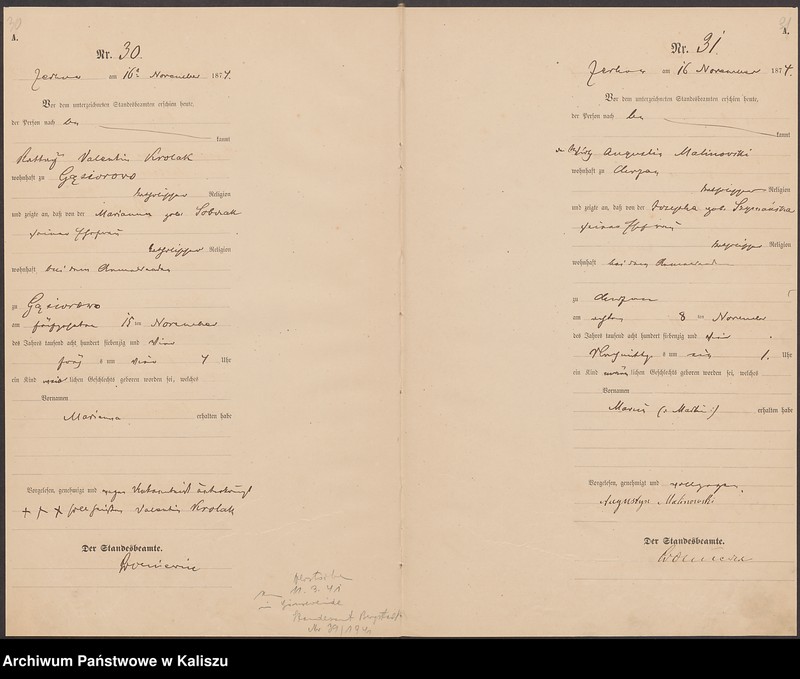 30
A.
Nr. 30.
Zerkow am 16. November 1874.
Vor dem unterzeichneten Standesbeamten erschien heute,
der Person nach be
kannt
Valentin Krolak
wohnhaft zu Gąsiorowo
katholischer Religion
und zeigte an, daß von der Marianna geb. Sobczak
seiner Ehefrau
katholischer Religion
wohnhaft bei dem
zu Gąsiorowo
am fünfzehnten 15 ten November
des Jahres tausend acht hundert siebenzig und vier
früh s um vier 4 Uhr
ein Kind weiblichen Geschlechts geboren worden sei, welches
Vornamen
Marianna erhalten habe
Vorgelesen, genehmigt und wegen
+ + + Valentin Krolak
Der Standesbeamte.
11. 3. 41
Standesamt
Nr. 39/1941
31
A.
Nr. 31
Zerkow am 16 November 1874.
Vor dem unterzeichneten Standesbeamten erschien heute,
der Person nach be
kannt
Augustin Malinowski
wohnhaft zu
katholischer Religion
und zeigte an, daß von der Josepha geb. Szymańska
seiner Ehefrau
katholischer Religion
wohnhaft bei dem
zu
am achten 8 ten November
des Jahres tausend acht hundert siebenzig und vier
Nachmittags s um ein 1. Uhr
ein Kind männlichen Geschlechts geboren worden sei, welches
Vornamen
Marcin (: Martin :) erhalten habe
Vorgelesen, genehmigt und vollzogen.
Augustyn Malinowski
Der Standesbeamte.
Archiwum Państwowe w Kaliszu